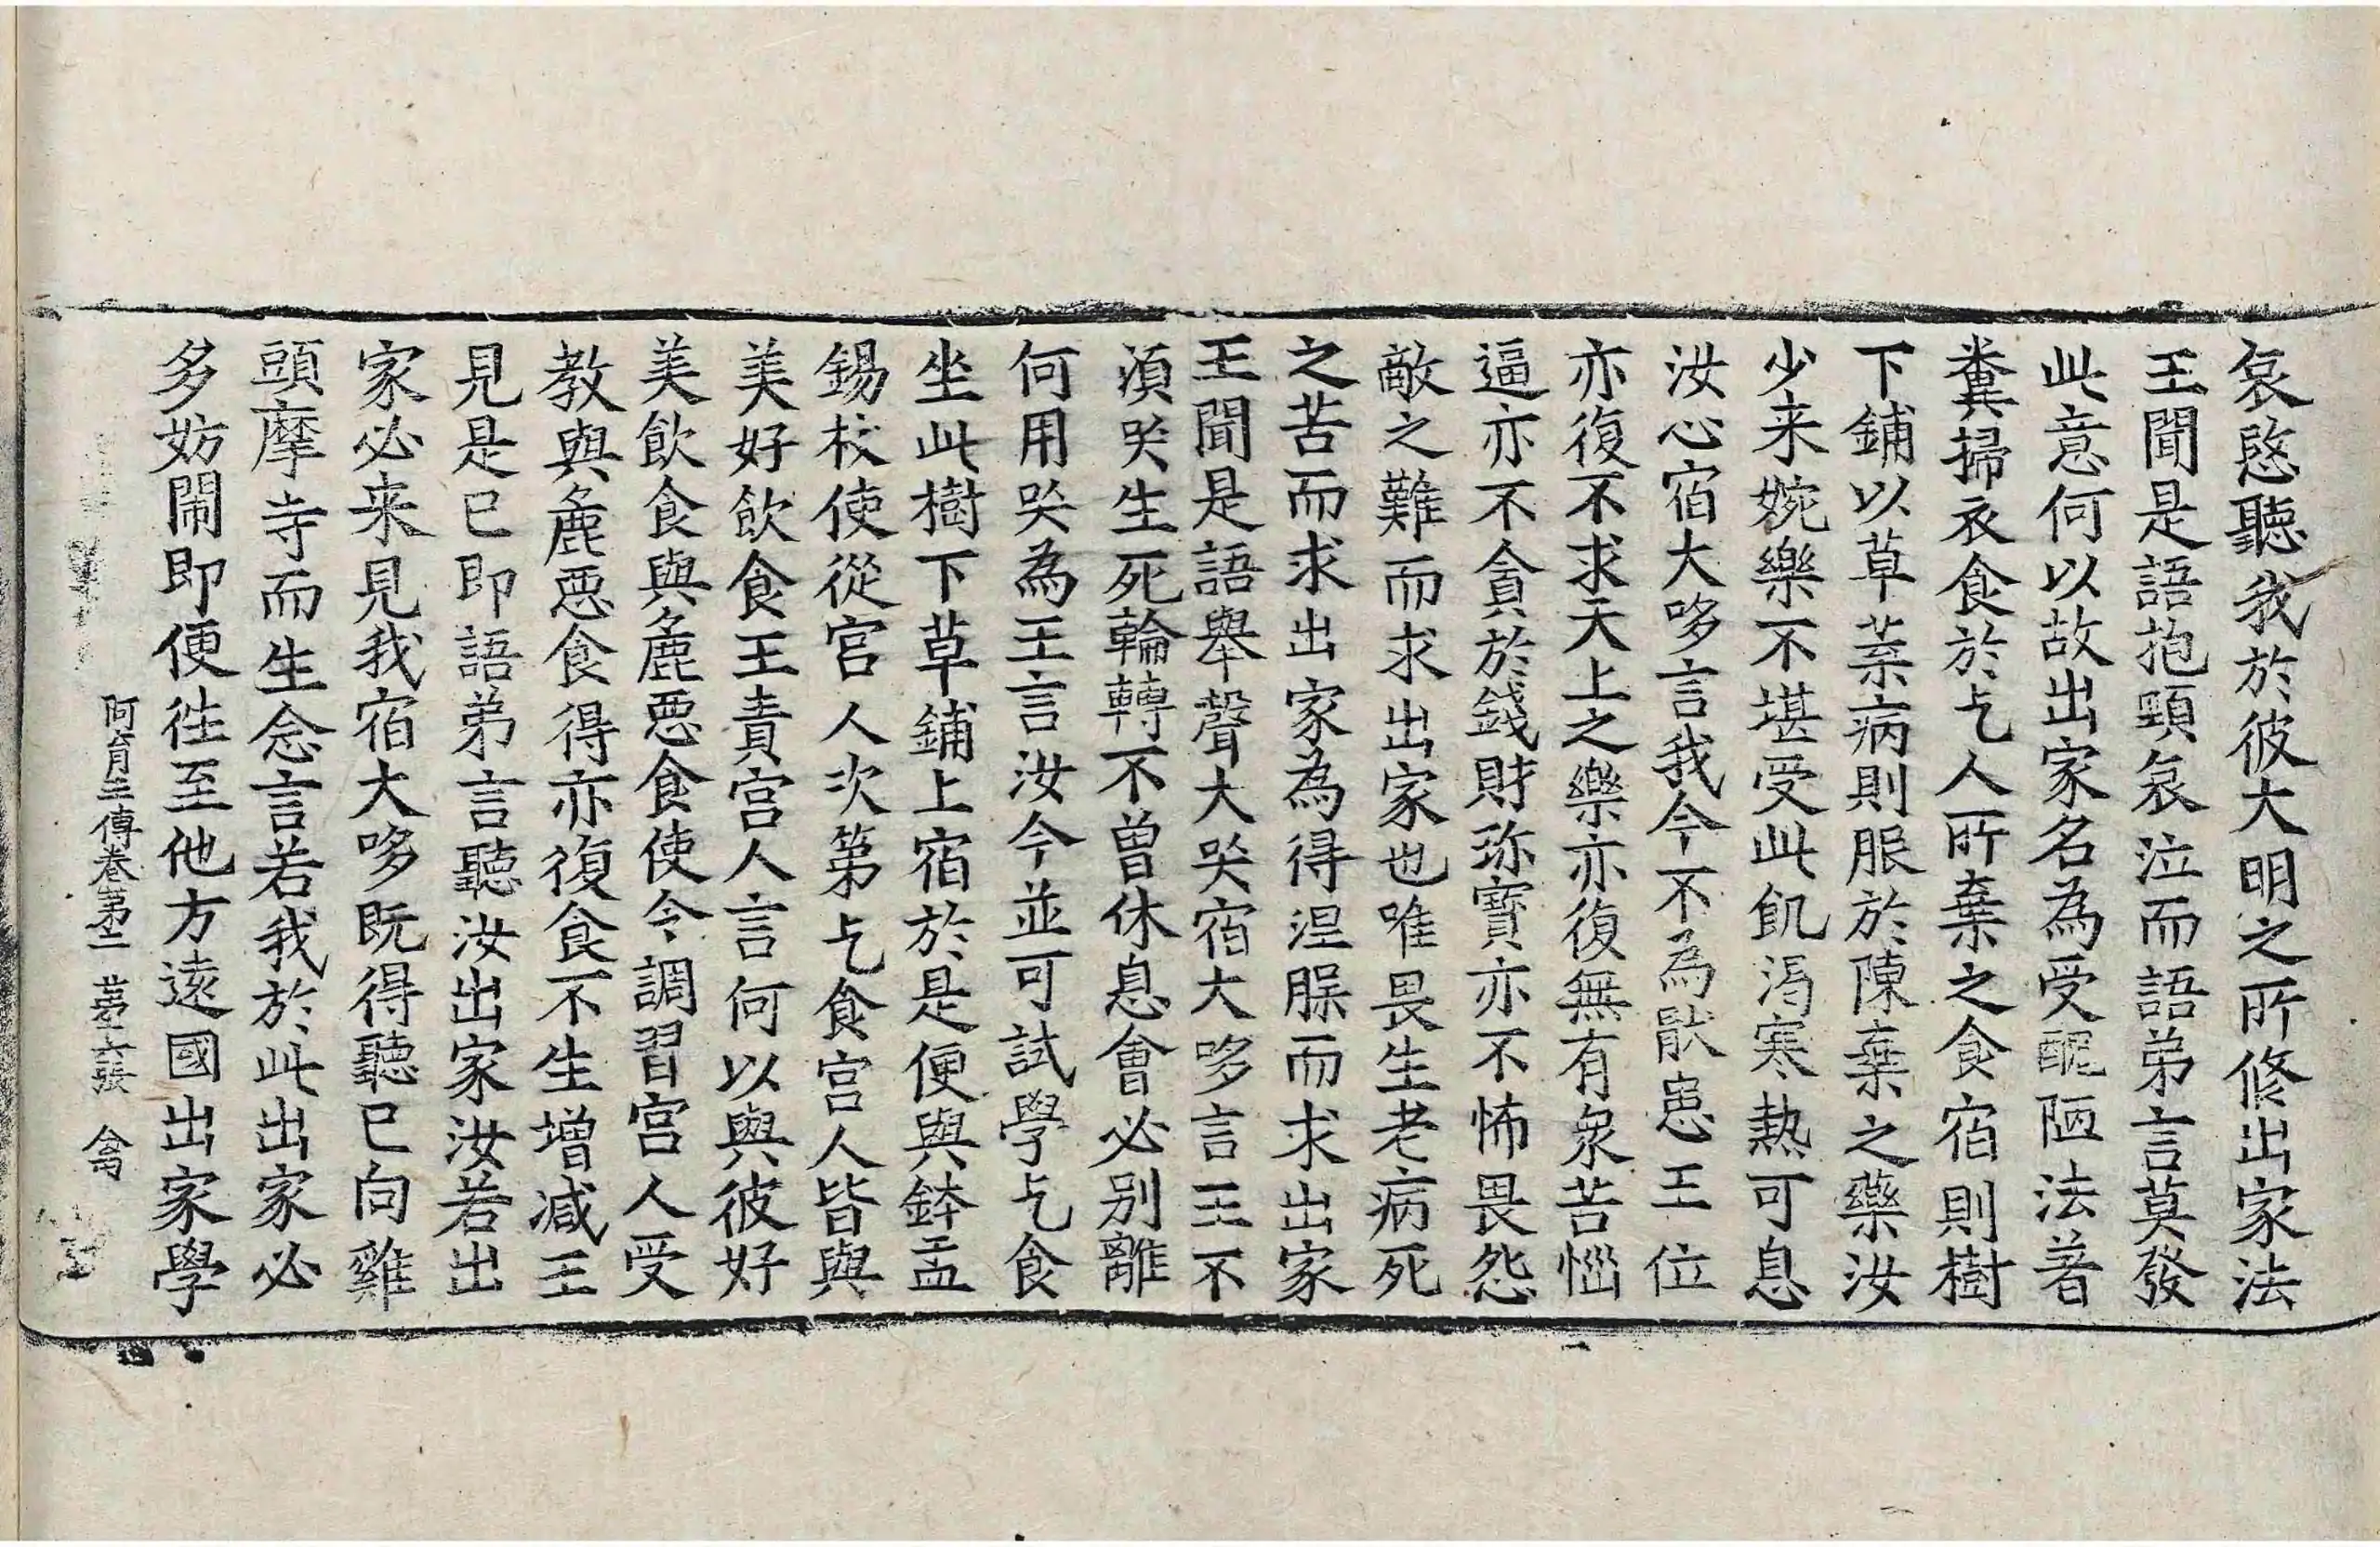 哀愍聽我於彼大明之所修出家法
王聞是語抱頸哀泣而語弟言莫發
此意何以故出家名為受醜陋法著
糞掃衣食於乞人所棄之食宿則樹
下鋪以草葉病則服於陳棄之藥汝
少来婉樂不堪受此飢渴寒熱可息
汝心宿大哆言我今不為猒患王位
亦復不求天上之樂亦復無有衆苦惱
逼亦不貪於錢財珎寶亦不怖畏怨
敵之難而求出家也唯畏生老病死
之苦而求出家為得涅脲而求出家
王聞是語舉聲大哭宿大哆言王不
湏哭生死輪轉不曾休息會必別離
何用哭為王言汝今並可試學乞食
坐此樹下草鋪上宿於是便與鉢盂
錫杖使從宮人次第乞食宮人皆與
美好飲食王責宮人言何以與彼好
美飲食與麁惡食使令調習宮人受
教與麁惡食得亦復食不生增减王
見是已即語弟言聽汝出家汝若出
家必来見我宿大哆既得聽已向雞
頭摩寺而生念言若我於此出家必
多妨閙即便往至他方遠國出家學
阿育王傳卷第二 苐六張 禽